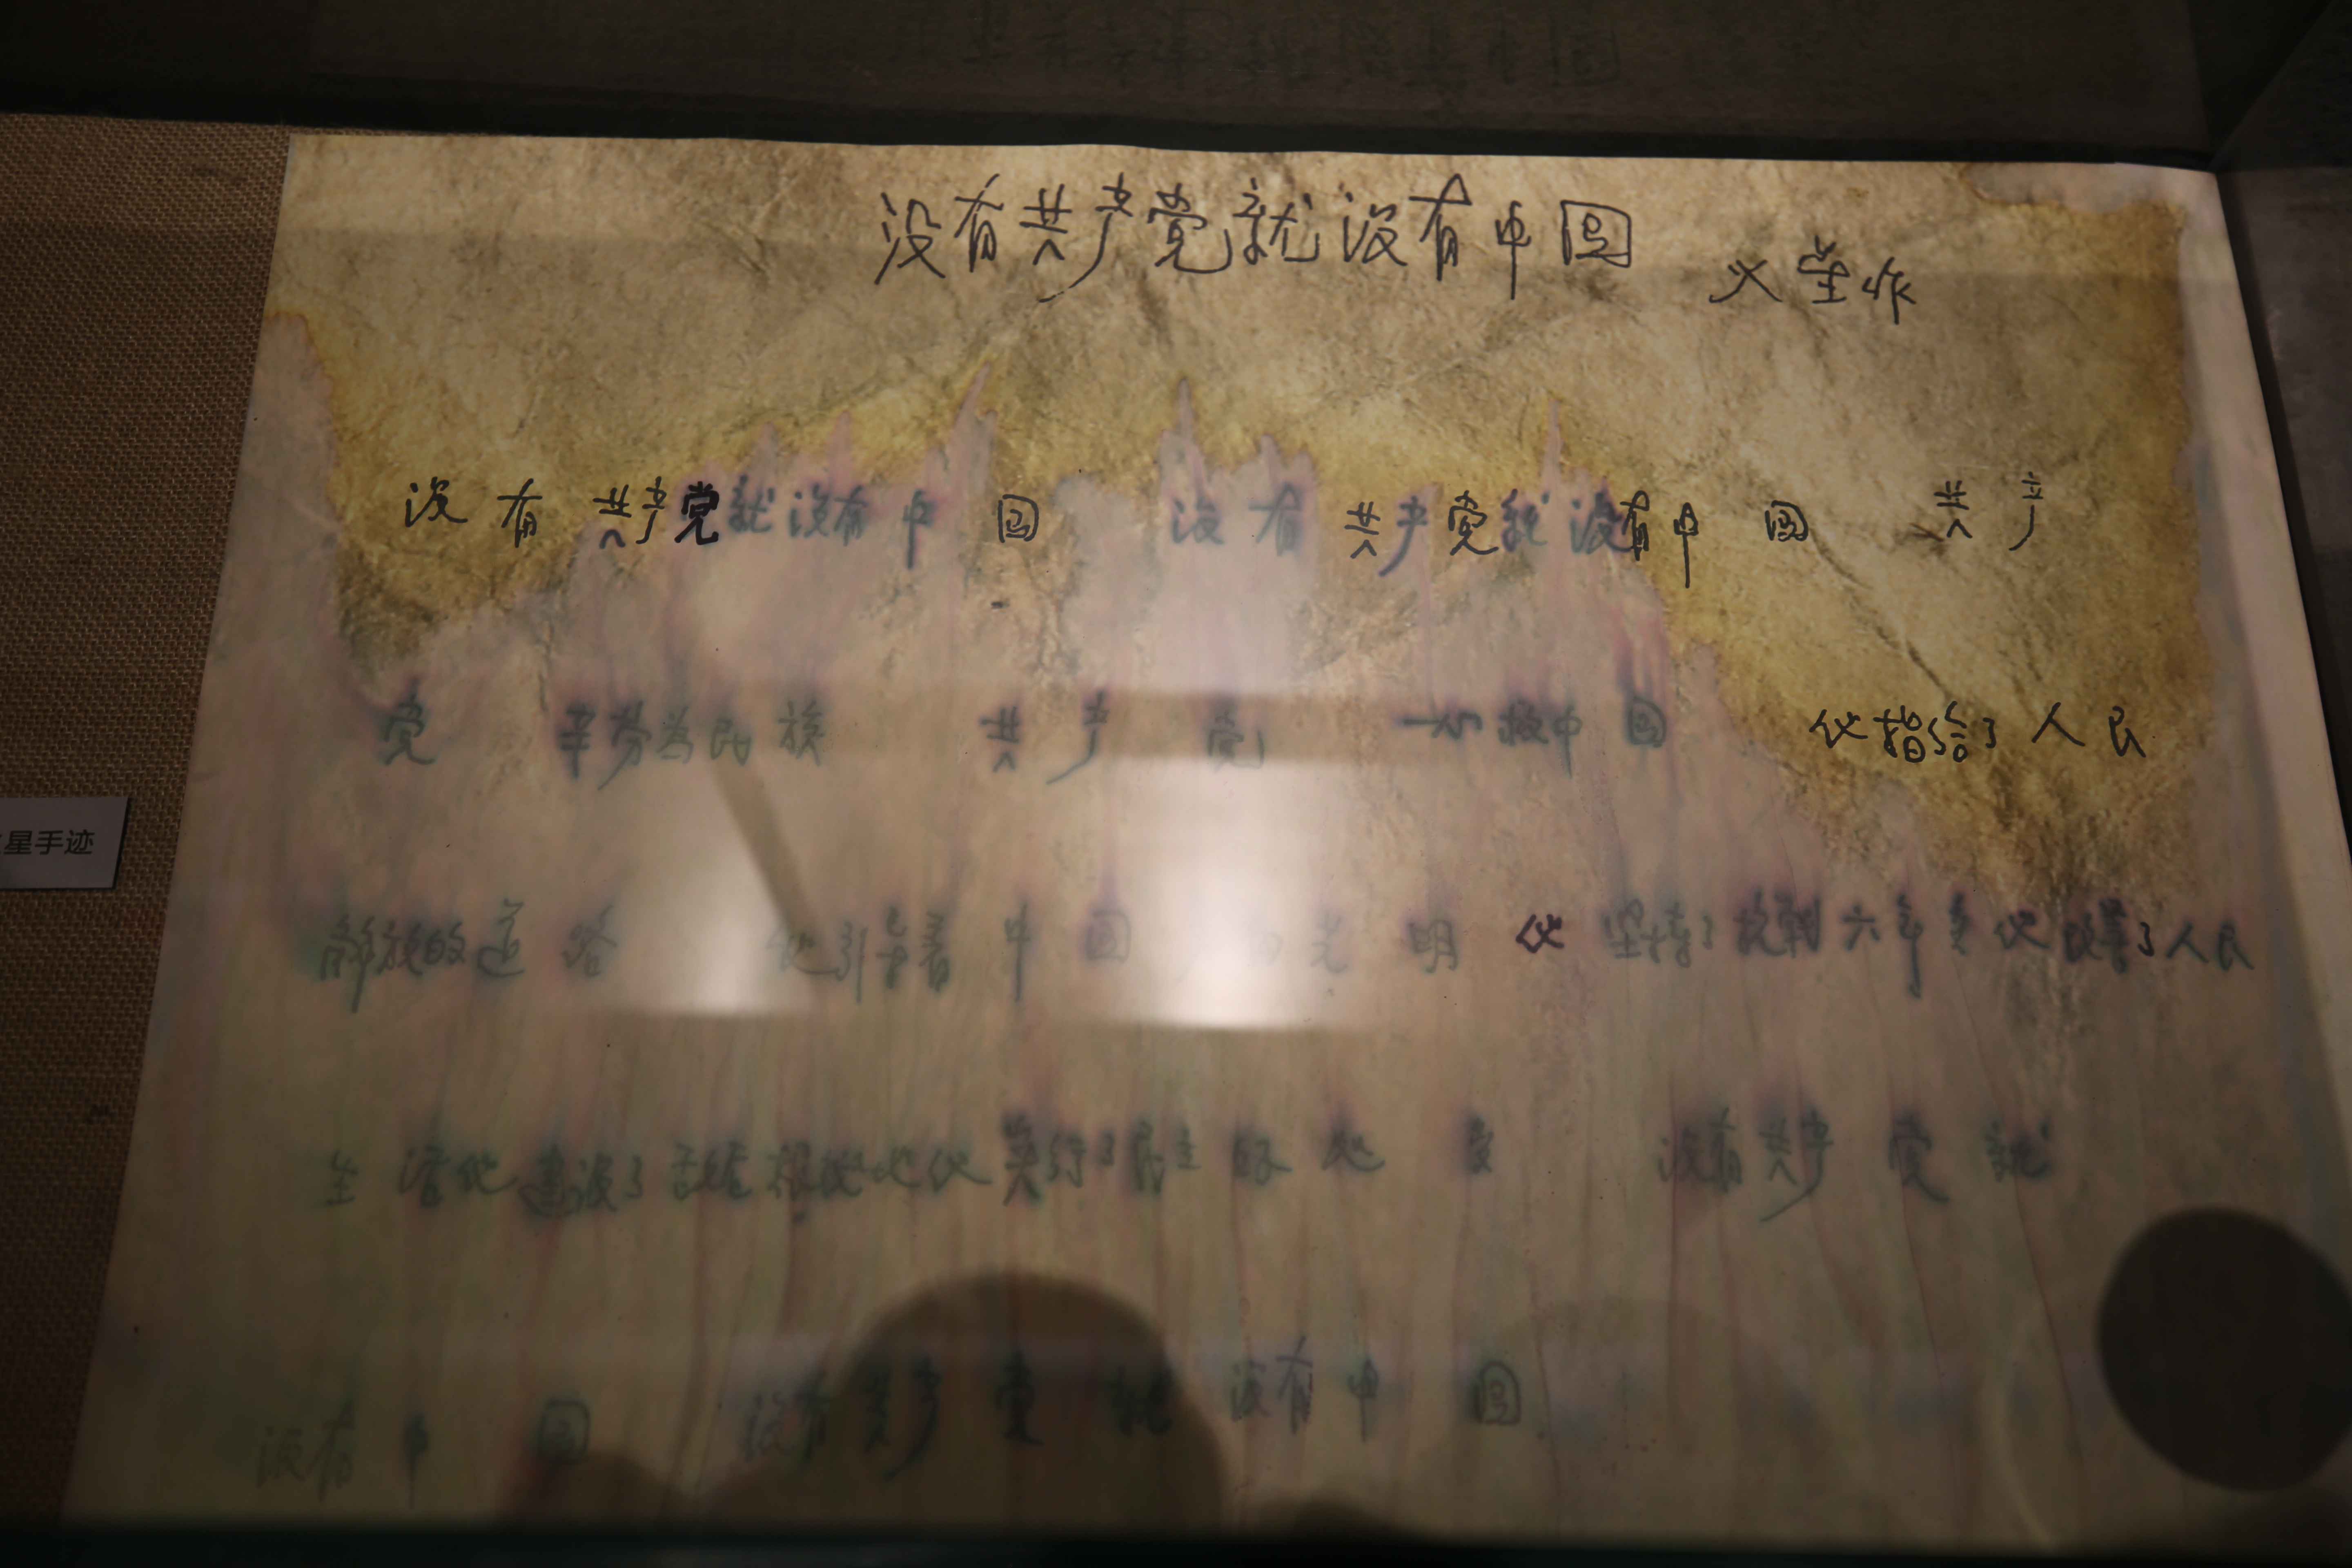 没有共产党就没有中国
火星作
没有共产党就没有中国 没有共产党就没有中国 共产
党 辛劳为民族 共产党 一心救中国 他指给了人民
解放的道路 他引导着中国 光明 他坚持了抗战六年多他改善了人民
生活他建设了敌后根据地他实行了民主的好处 没有共产党就
没有中国 没有共产党就没有中国
星手迹